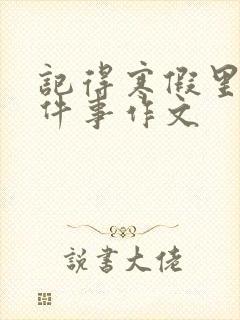 記得寒假里
件事作文
說書大佬